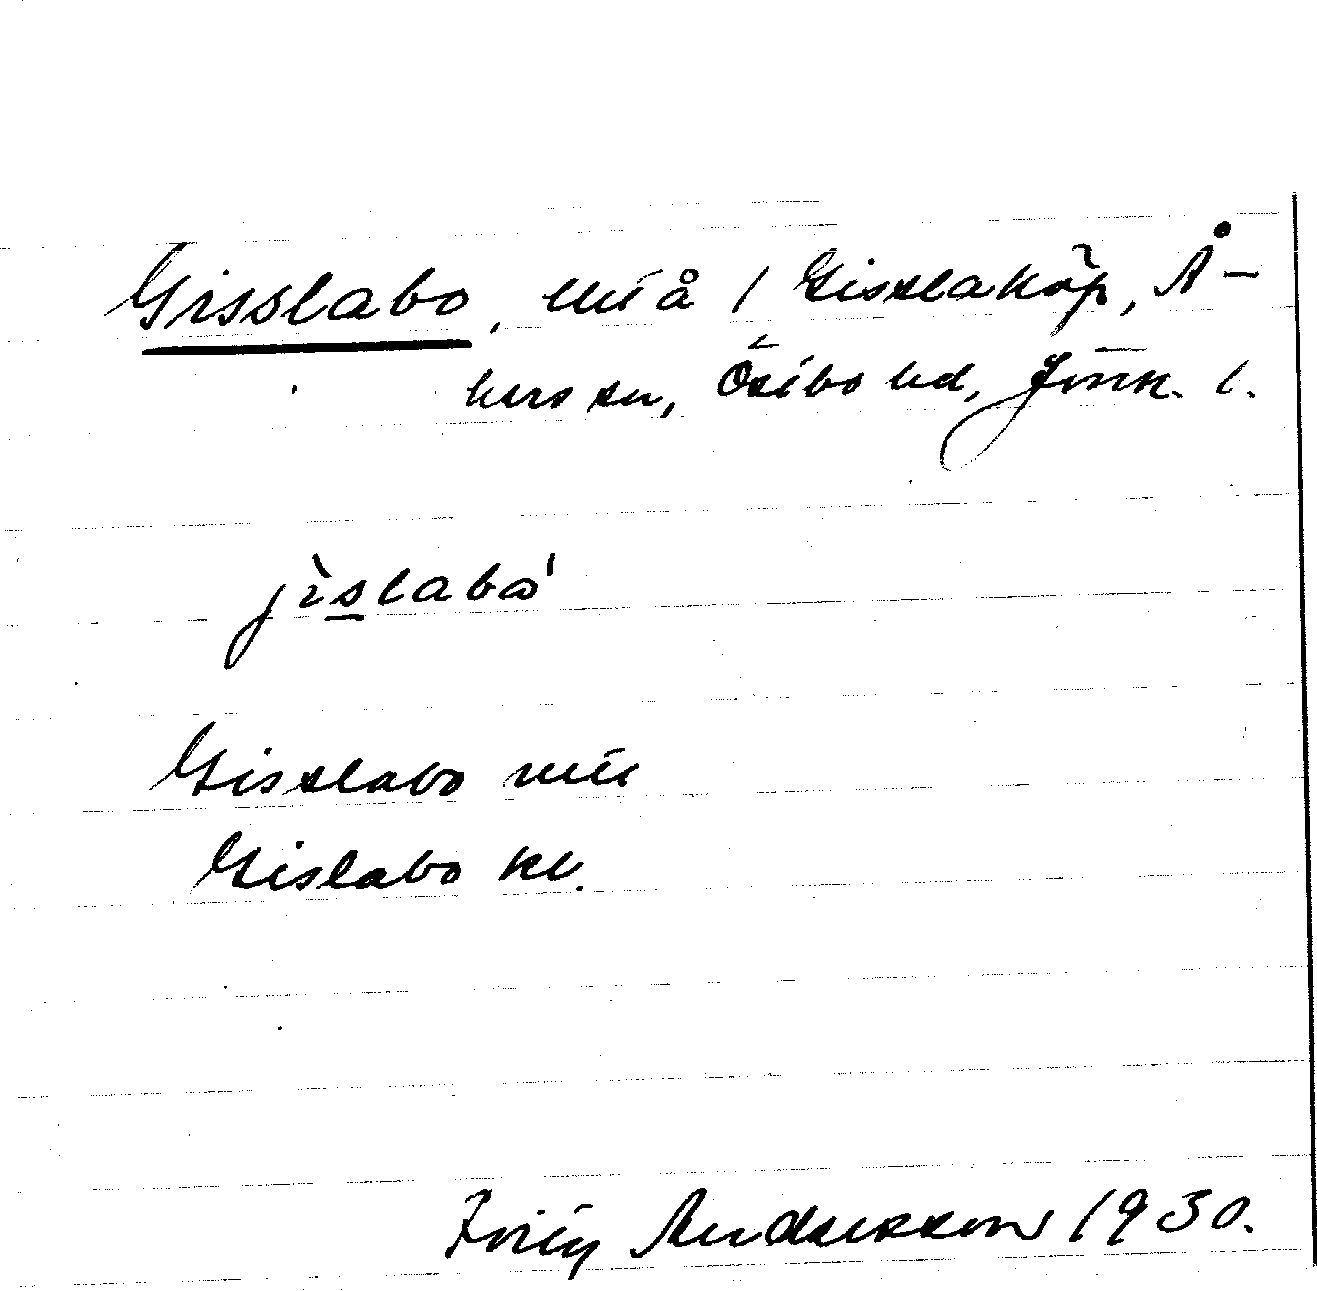 Gisslabo, utl å 1 Gisslaköp, Å-
kers sn, Östbo hd, Jönk. l.
jìslabo'
Gisslabo mtl
Gislabo kv.
Andersson 1930.